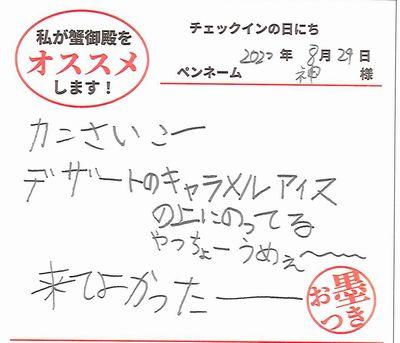 私が蟹御殿を
オススメ
します！
チェックインの日にち
2022 年 8月 29日
ペンネーム 神 様
カニさいこー
デザートのキャラメルアイス
の上にのってる
やつちょーうめぇ〜〜
来てよかったーー
お墨つき